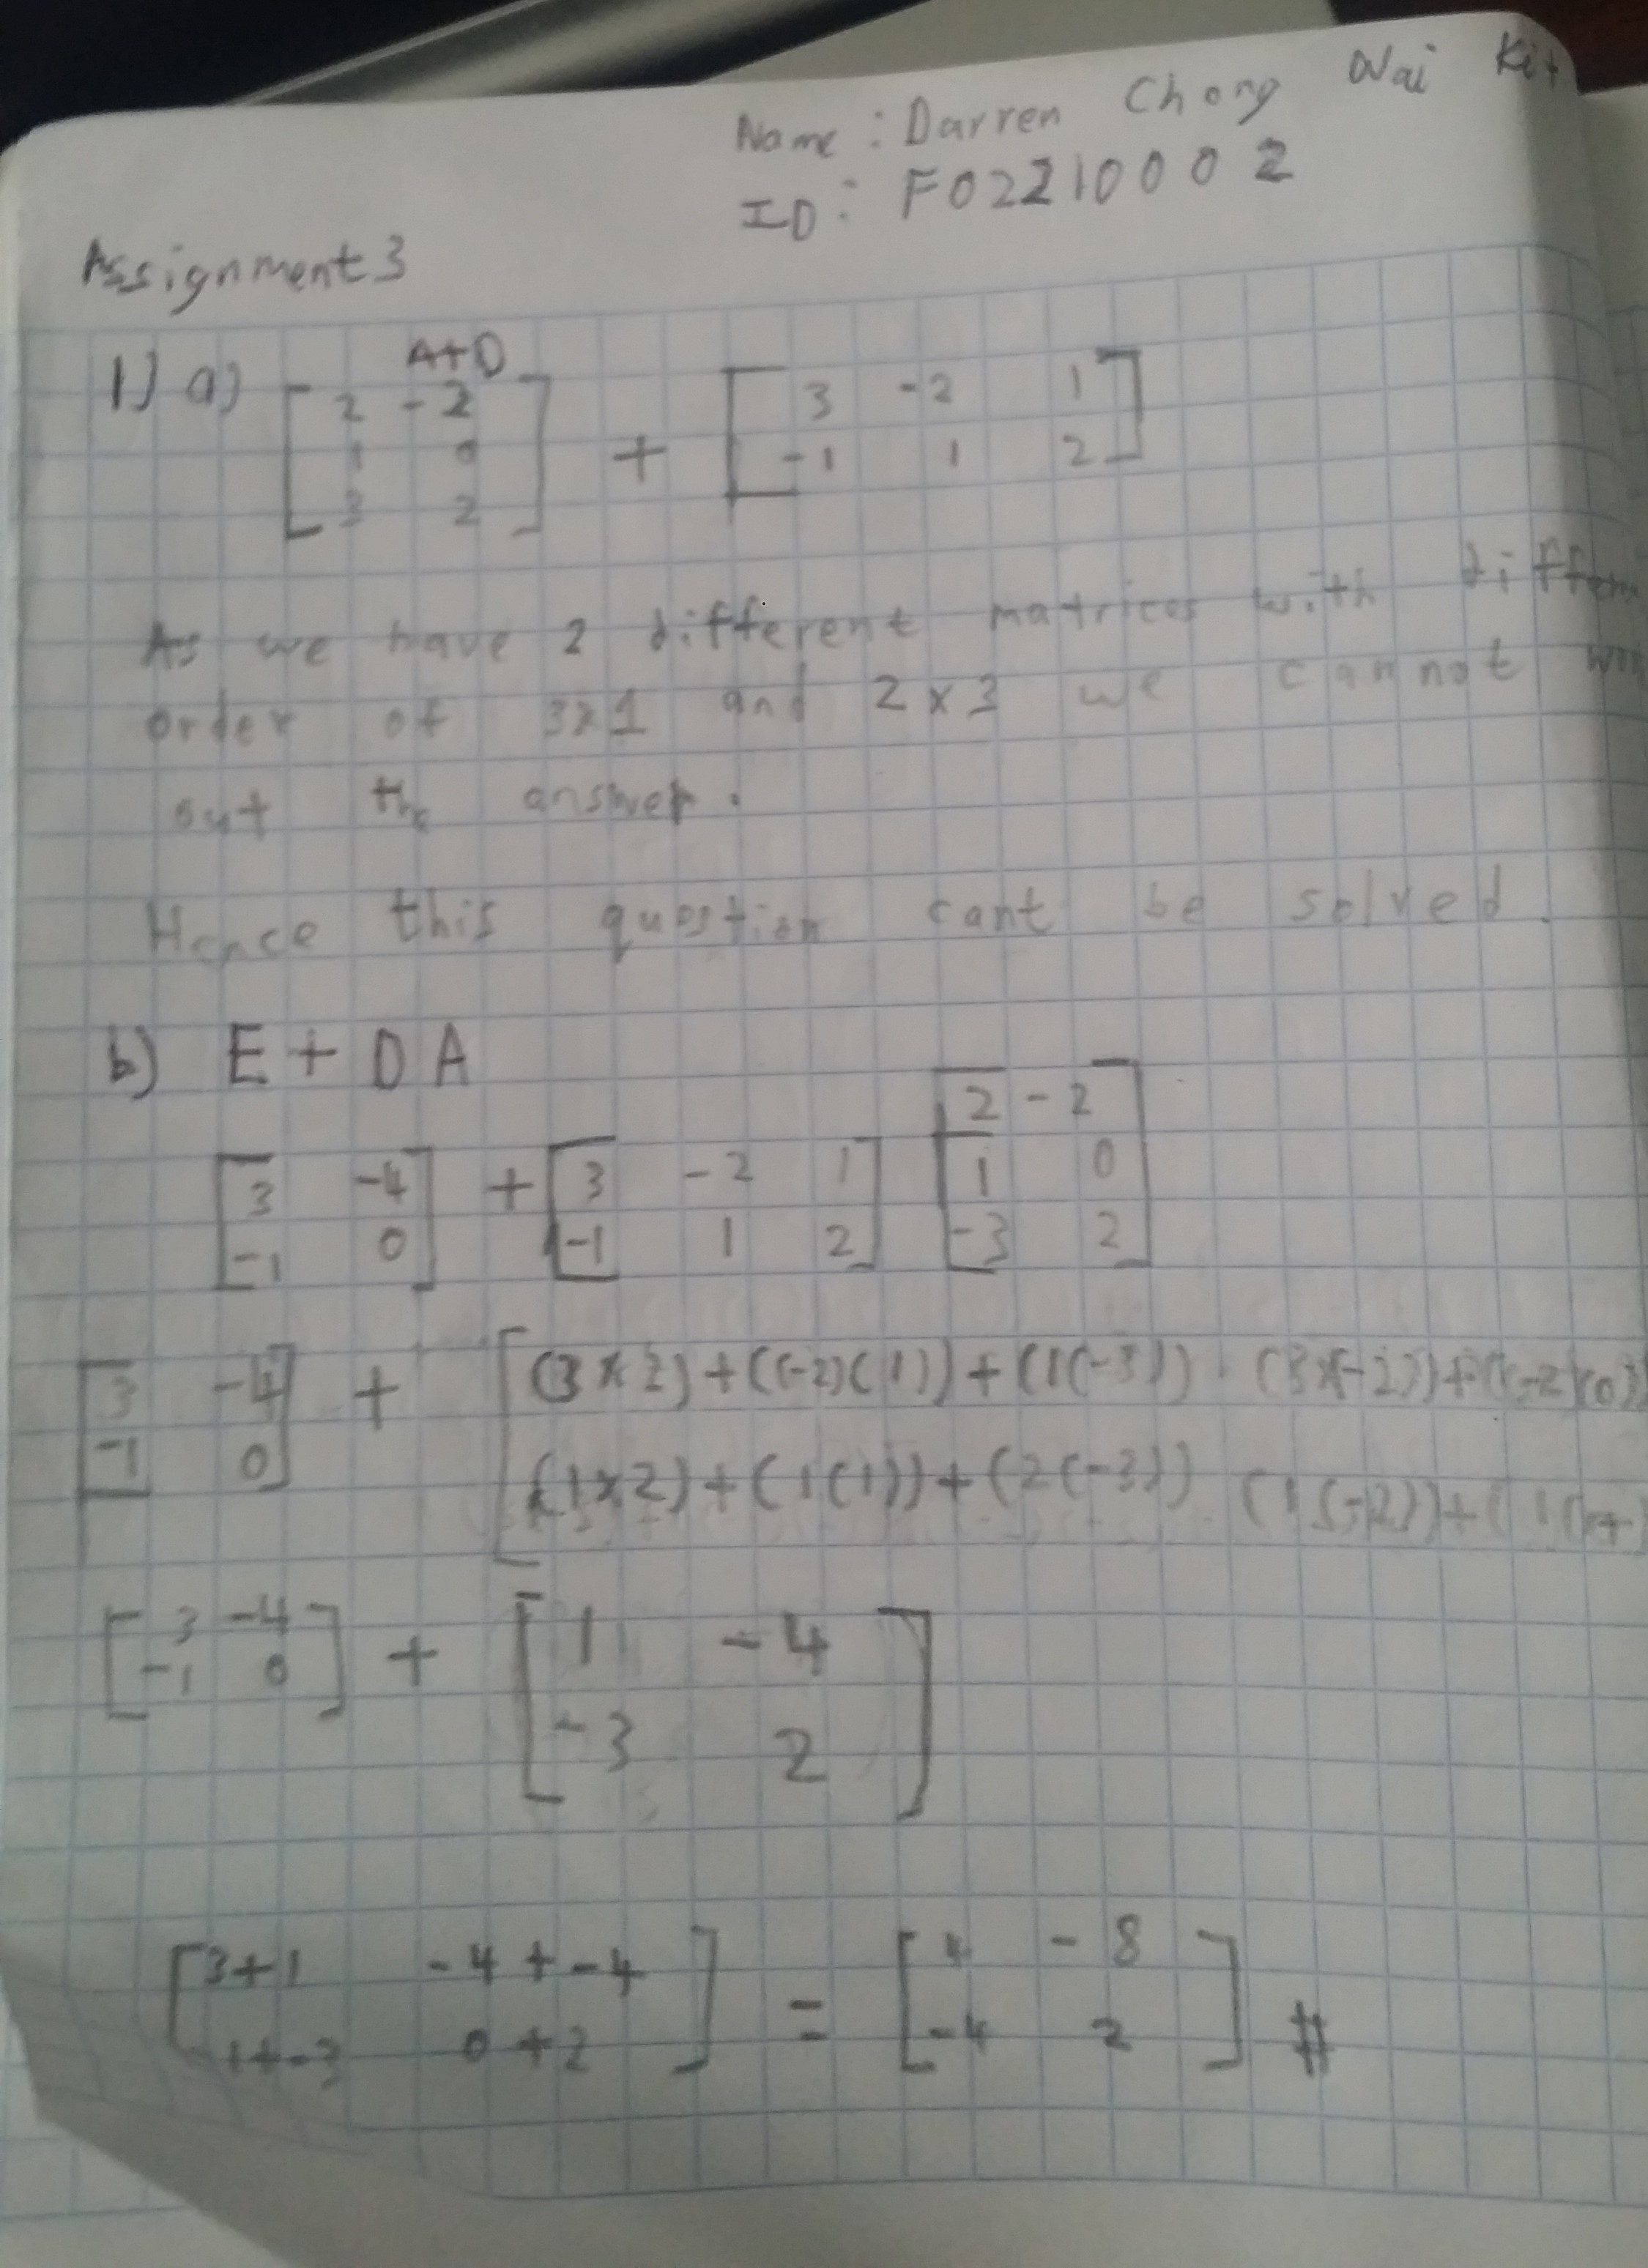 Name: Darren Chong Wai Kit
ID: F02210002
Assignment 3
1) a) A+D
[2 -2] + [3 -2 1]
[1 0] [-1 1 2]
[3 2]
As we have 2 different matrices with differen
order of 3x1 and 2x3 we cannot
out the answer.
Hence this question cant be solved.
b) E + DA
[3 -4] + [3 -2 1] [2 -2]
[-1 0] [-1 1 2] [1 0]
[-3 2]
[3 -4] + [(3x2)+((-2)(1))+(1(-3)) (3x(-2))+((-2)(0)
[-1 0] [(1x2)+(1(1))+(2(-3)) (1(-2))+(1(
[3 -4] + [1 -4]
[-1 0] [-3 2]
[3+1 -4+-4] = [4 -8]
[-1+-3 0+2] [-4 2] #